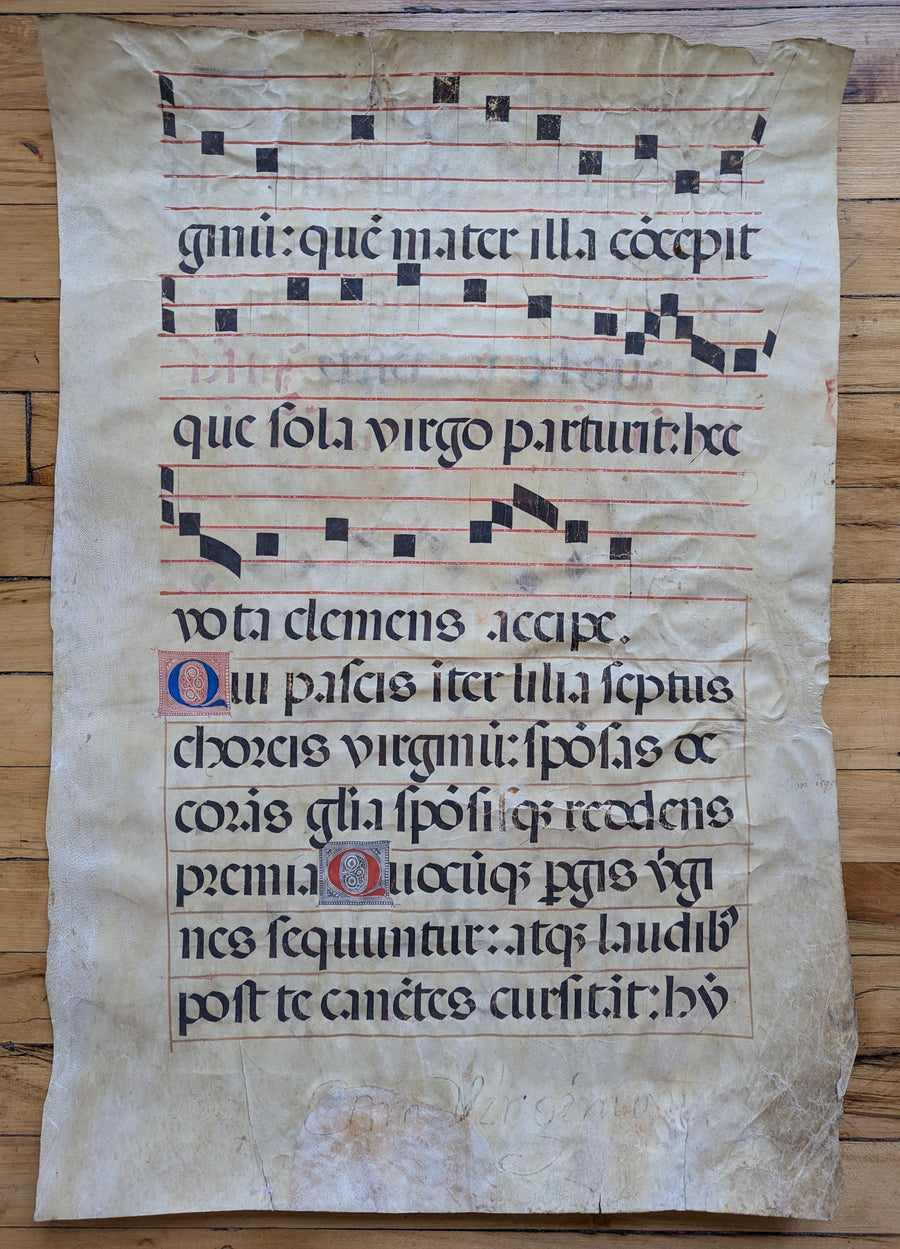 ginū: quē mater illa cōcepit
que ſola virgo parturit: hec
vota clemens accipe.
Qui paſcis īter lilia ſeptus
choreis virginū: ſpōſas de
corās gl̄ia ſpōſiſqꝫ reddens
premia Quocūqꝫ ꝑgis v̇gi
nes ſequuntur: atqꝫ laudibꝰ
poſt te canētes curſitāt: hẏ